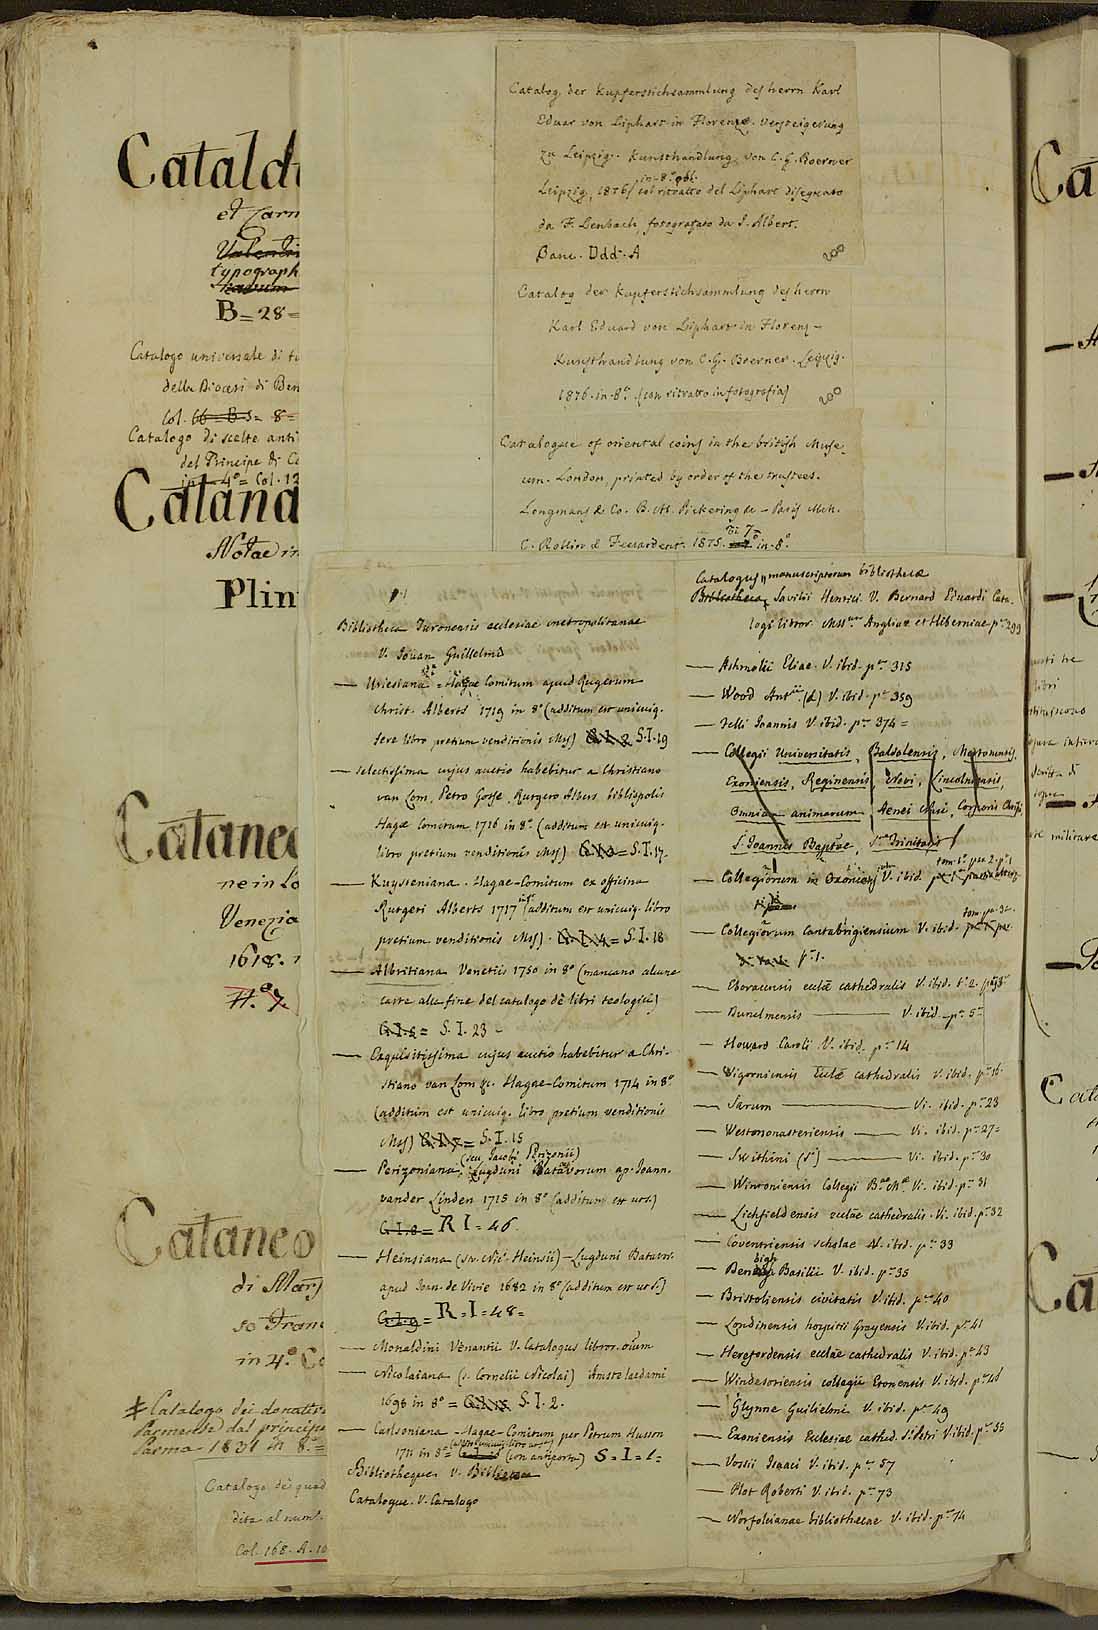 Catald
et Carm
Valentin
typograph
B=28=
Catalogo universale di tu
della Diocesi di Ben
Col. 66=B.s= 8=
Catalogo di scelte anti
del Principe di Ca
in 4º= Col. 12
Catana
Notae in
Plin
Cataneo
ne in Lo
Venezia
1618.
H.º 7.
Cataneo
di Marj
so Franc
in 4.º Co
Catalogo dei donativi
Parmense dal principe
Parma 1831 in 8.º=
Catalogo dei quad
dita al num.
Col. 168. A. 10
Catalog der Kupferstichsammlung des herrn Karl
Eduar von Liphart in Florenz. Versteigerung
zu Leipzig. Kunsthandlung von C. G. Boerner
in-8º obl.
Leipzig, 1876/ col ritratto del Liphart disegnato
da F. Lenbach, fotografato da I. Albert.
Banc. Ddd. A
200
Catalog der Kupferstichsammlung des herrn
Karl Eduard von Liphart in Florenz –
Kunsthandlung von C. G. Boerner. Leipzig.
1876. in-8º. (con ritratto in fotografia)
200
Catalogue of oriental coins in the british Muse.
um. London, printed by order of the trustees.
Longmans & Co. B. M. Pickering &c – Paris Mch.
Ti 7=
C. Rollin & Feuardent. 1875. in-8º.
Bibliotheca Turonensis ecclesiae metropolitanae
V. Jouan Guillelmi
— Uriesiana = Hagae Comitum apud Rugerum
Christ. Alberts 1719 in 8º (additum est unicuiq.
fere libro pretium venditionis Mss) G.I.2 S.I.19
— selectissima cujus auctio habebitur a Christiano
van Lom, Petro Gosse, Rutgero Albers bibliopolis
Hagae Comitum 1716 in 8º (additum est unicuiq.
libro pretium venditionis Mss) = S.I.17.
— Kuysteniana. Hagae-Comitum ex officina
in 8º
Rutgeri Alberts 1717 (additum est unicuiq. libro
pretium venditionis Mss). G.I.4= S.I.18
— Albritiana Venetiis 1750 in 8º (mancano alcune
carte alla fine del catalogo de libri teologici)
G.I.5= S.I.23 –
— Exquisitissima cujus auctio habebitur a Chri-
stiano van Lom &c. Hagae-Comitum 1714 in 8º
(additum est unicuiq. libro pretium venditionis
Mss) G.I.7= S.I.15
(seu Jacobi Perizonii)
— Perizoniana, Lugduni Batavorum ap. Joann.
vander Linden 1715 in 8º (additum est ut s.)
G.I.8= R I=46.
— Heinsiana (sv. Nic. Heinsii) – Lugduni Batavor.
apud Joan. de Vivie 1682 in 8º (additum est ut s.)
G.I.9= R=I=48=
— Monaldini Venantii V. Catalogus libror. oium
— Nicolaiana (s. Cornelii Nicolai) Amstelaedami
1698 in 8º = S.I.2.
— Carlsoniana – Hagae-Comitum per Petrum Husson
1711 in 8º= (con antiporta) S=I=1=
Bibliotheque V. Biblioteca
Catalogue. V. Catalogo
Catalogus manuscriptorum bibliothecae
Bibliotheca Savilii Henrici V. Bernard Eduardi Cata-
logi libror. Mss. Angliae et Hiberniae p. 299
— Ashmolii Eliae. V. ibid. p. 315
— Wood Ant. (d) V. ibid. p. 359
— Felli Joannis V. ibid. p. 374=
— Collegii Universitatis, Baliolensis, Mertonensis,
Exoniensis, Reginensis, Novi, Lincolniensis,
Omnium animarum, Aenei Nasi, Corporis Christi
S. Joannis Baptae, Ssae Trinitatis
— Collegiorum in Oxoniens. V. ibid. tom. 1º par. 2. p. 1
— Collegiorum Cantabrigiensium V. ibid. tom. pa. 3a.
p. 1.
— Eboracensis ecclae cathedralis V. ibid. t. 2. p.
— Dunelmensis — V. ibid. p. 5
— Howard Caroli V. ibid. p. 14
— Wigorniensis Ecclae cathedralis V. ibid. p. 16
— Sarum — Vi. ibid. p. 23
— Westonasteriensis — Vi. ibid. p. 27=
— Swithini (S.) — Vi. ibid. p. 30
— Wintoniensis Collegii B. M. Vi. ibid. p. 31
— Lichfieldensis ecclae cathedralis. Vi. ibid. p. 32
— Coventriensis scholae V. ibid. p. 33
— Denbigh Basilii V. ibid. p. 35
— Bristoliensis civitatis V. ibid. p. 40
— Londinensis hospitii Grayensis V. ibid. p. 41
— Herefordensis ecclae cathedralis V. ibid. p. 43
— Windesoriensis collegii Etonensis V. ibid. p. 46
— Glynne Guilielmi V. ibid. p. 49
— Exoniensis Ecclesiae cathed. S. Petri V. ibid. p. 55
— Vossii Isaaci V. ibid. p. 57
— Plot Roberti V. ibid. p. 73
— Norfolcianae bibliothecae V. ibid. p. 74
Ca
libri
Ca